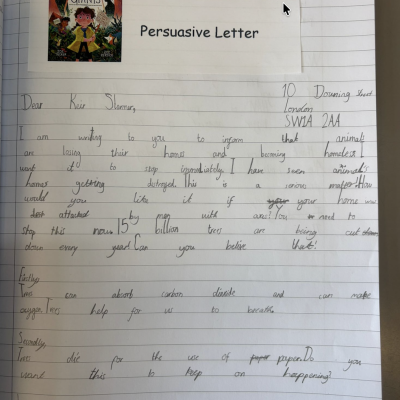 Persuasive Letter
10 Downing Street
London
SW1A 2AA
Dear Keir Starmer,
I am writing to you to inform that animals
are losing their homes and becoming homeless I
want it to stop immediatly. I have seen animals
homes getting distroyed. This is a serious matter. How
would you like it if your your home was
attacked by men with axes! You need to
stop this now. 15 billion trees are being cut
down every year! Can you belive that!
Firstly,
Trees can absorb carbon dioxide and can make
oxygen. Trees help for us to breathe.
Secondly,
Trees die for the use of paper paper. Do you
want this to keep on happening?